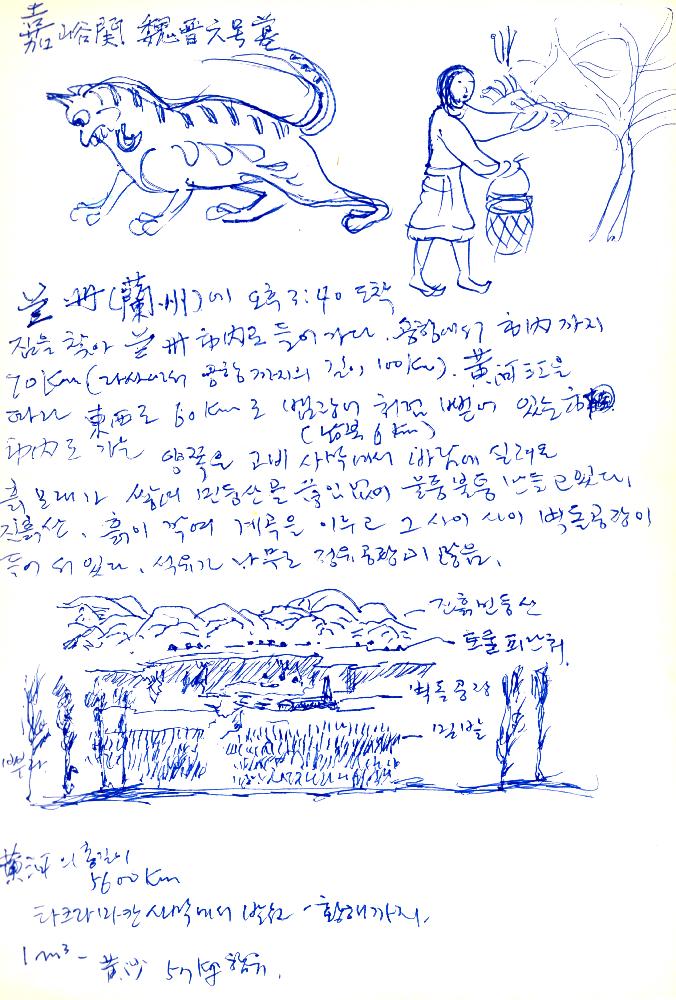 嘉峪関 魏晋六号墓
兰州(蘭州)에 오후 3:40 도착
짐을 찾아 兰州 市内로 들어가다. 공항에서 市内까지
90Km( 공항까지의 길이 100Km). 黄河를
따라 東西로 60Km로 뱀같이 처럼 뻗어 있는
(남북 6Km)
市内로 가는 양쪽은 고비 사막에서 바람에 실려온
흙모래가 쌓여 민둥산을 끊임없이 울퉁불퉁 만들고 있다.
진흙산, 흙이 깍여 계곡을 이루고 그 사이 사이 벽돌공장이
들어 서 있다. 석유가 나무로 정유공장이 많음.
진흙민둥산
토굴피난처
벽돌공장
밀밭
黄河의 총길이
5600Km
타크라마칸 사막에서 발원 - 황해까지.
1m³ - 黄沙 57kg 함유.